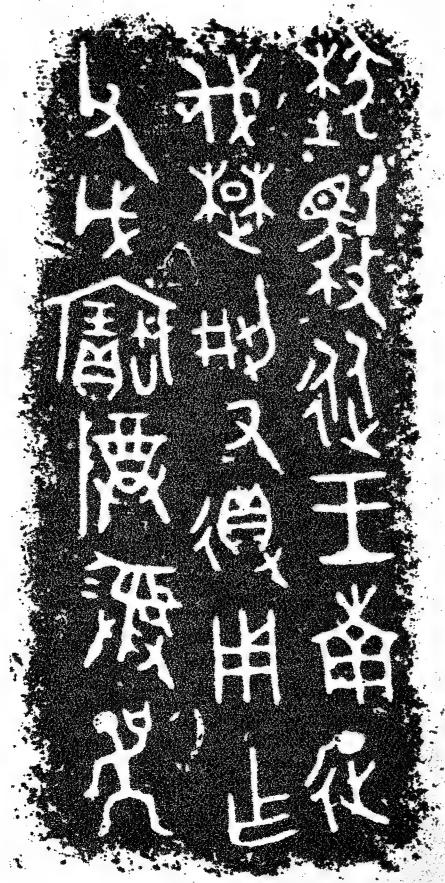 馭從王南征
伐楚荊又得用乍
父戊寶尊彝吳